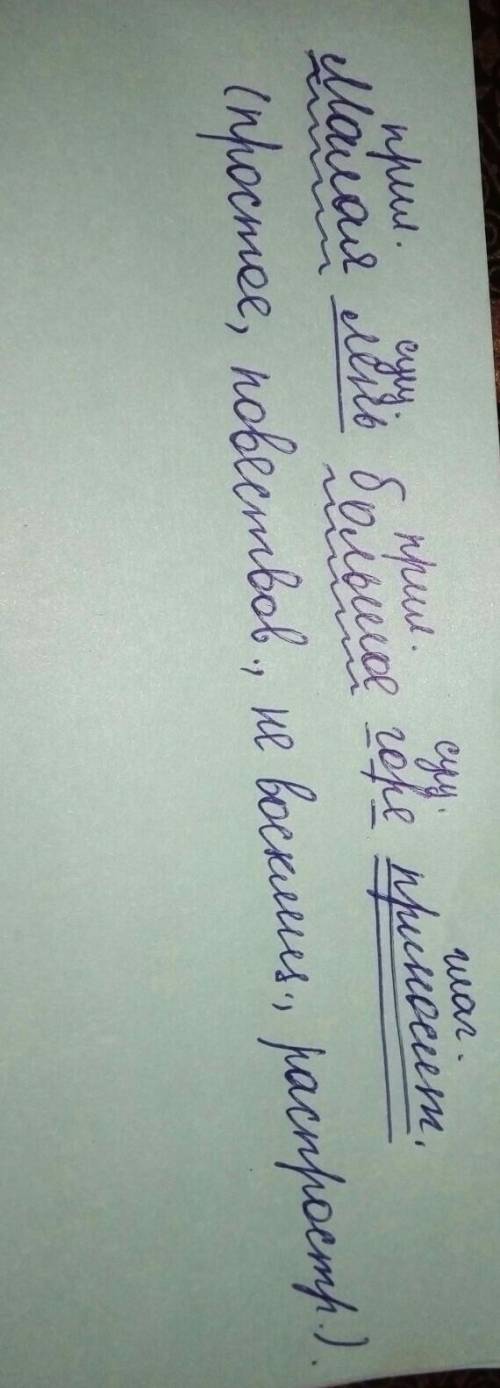 прил. сущ. прил. сущ. глаг.
Малая лень большое горе приносит.
(простое, повествов., не восклиц., распростр.).